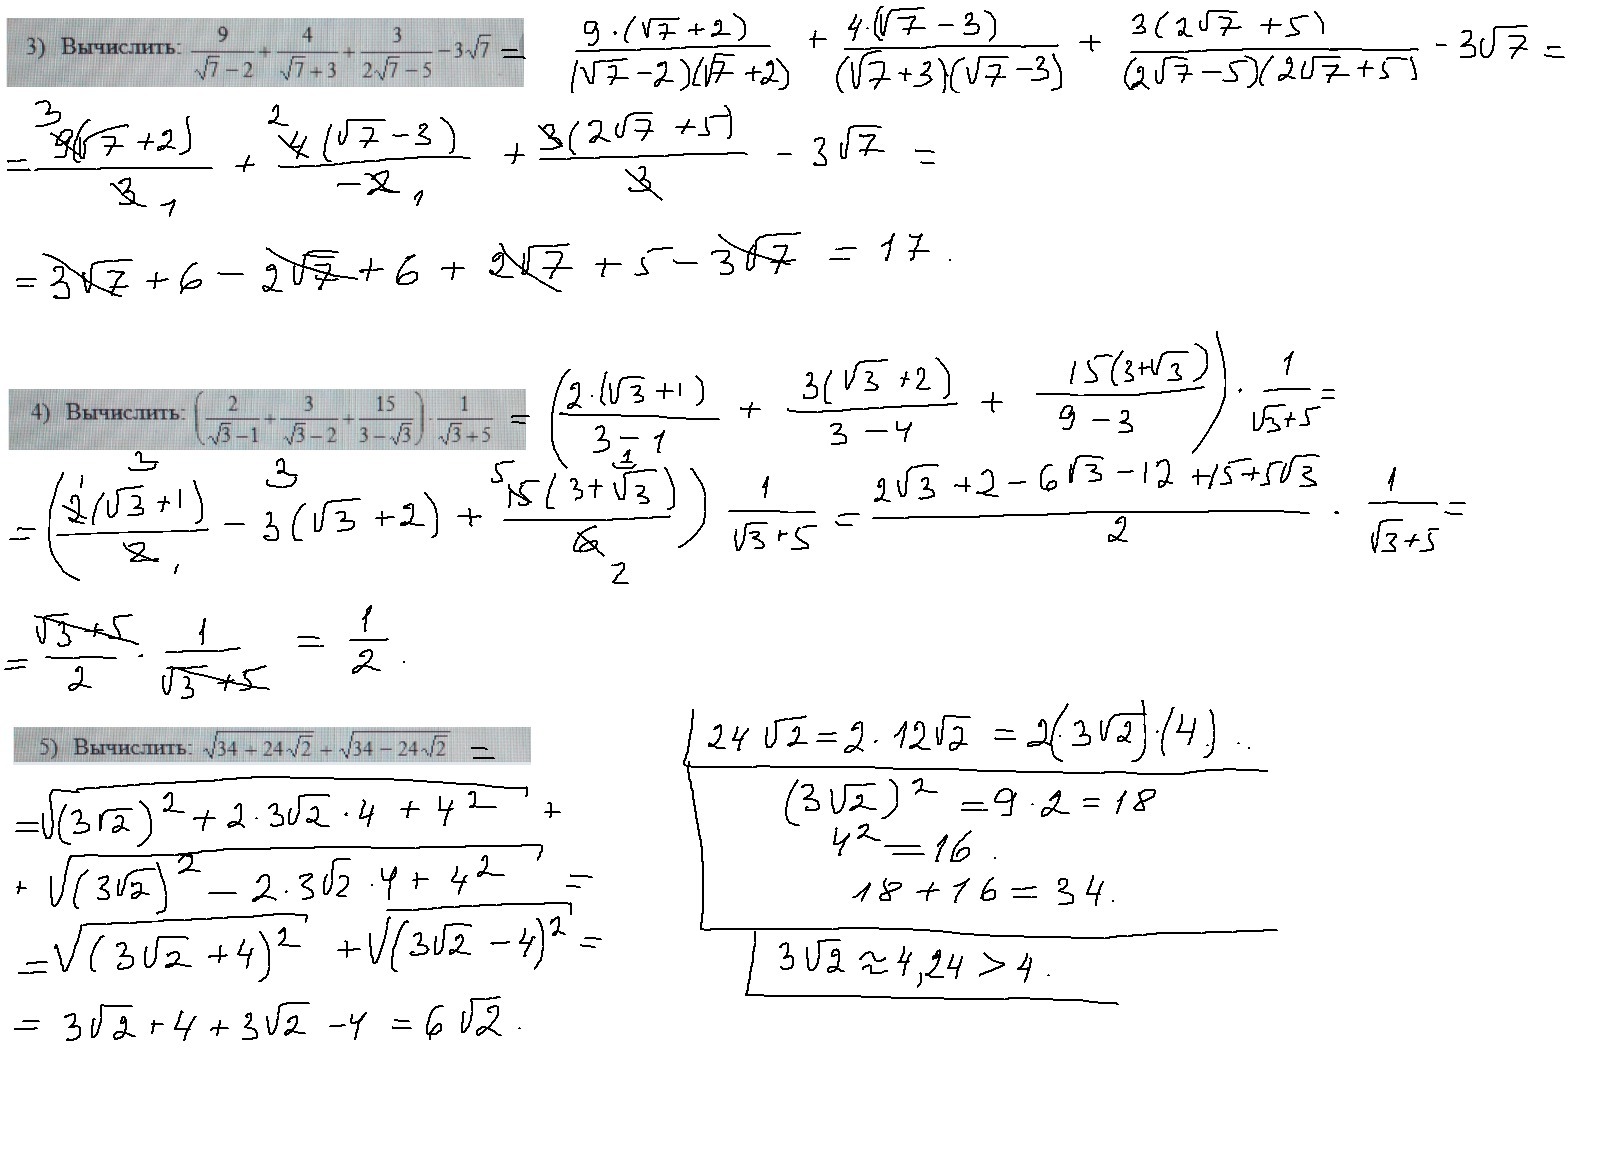 3) Вычислить: 9/(√7−2) + 4/(√7+3) + 3/(2√7−5) − 3√7 = 9·(√7+2)/((√7−2)(√7+2)) + 4·(√7−3)/((√7+3)(√7−3)) + 3(2√7+5)/((2√7−5)(2√7+5)) − 3√7 =
= 9(√7+2)/3 + 4(√7−3)/(−2) + 3(2√7+5)/3 − 3√7 =
= 3√7 + 6 − 2√7 + 6 + 2√7 + 5 − 3√7 = 17.
4) Вычислить: (2/(√3−1) + 3/(√3−2) + 15/(3−√3)) · 1/(√3+5) = (2·(√3+1)/(3−1) + 3(√3+2)/(3−4) + 15(3+√3)/(9−3)) · 1/(√3+5) =
= (2(√3+1)/2 − 3(√3+2) + 15(3+√3)/6) 1/(√3+5) = (2√3+2−6√3−12+15+5√3)/2 · 1/(√3+5) =
= (√3+5)/2 · 1/(√3+5) = 1/2.
5) Вычислить: √(34+24√2) + √(34−24√2) =
= √((3√2)² + 2·3√2·4 + 4²) +
+ √((3√2)² − 2·3√2·4 + 4²) =
= √((3√2+4)²) + √((3√2−4)²) =
= 3√2 + 4 + 3√2 − 4 = 6√2.
24√2 = 2·12√2 = 2(3√2)·(4)..
(3√2)² = 9·2 = 18
4² = 16.
18 + 16 = 34.
3√2 ≈ 4,24 > 4.